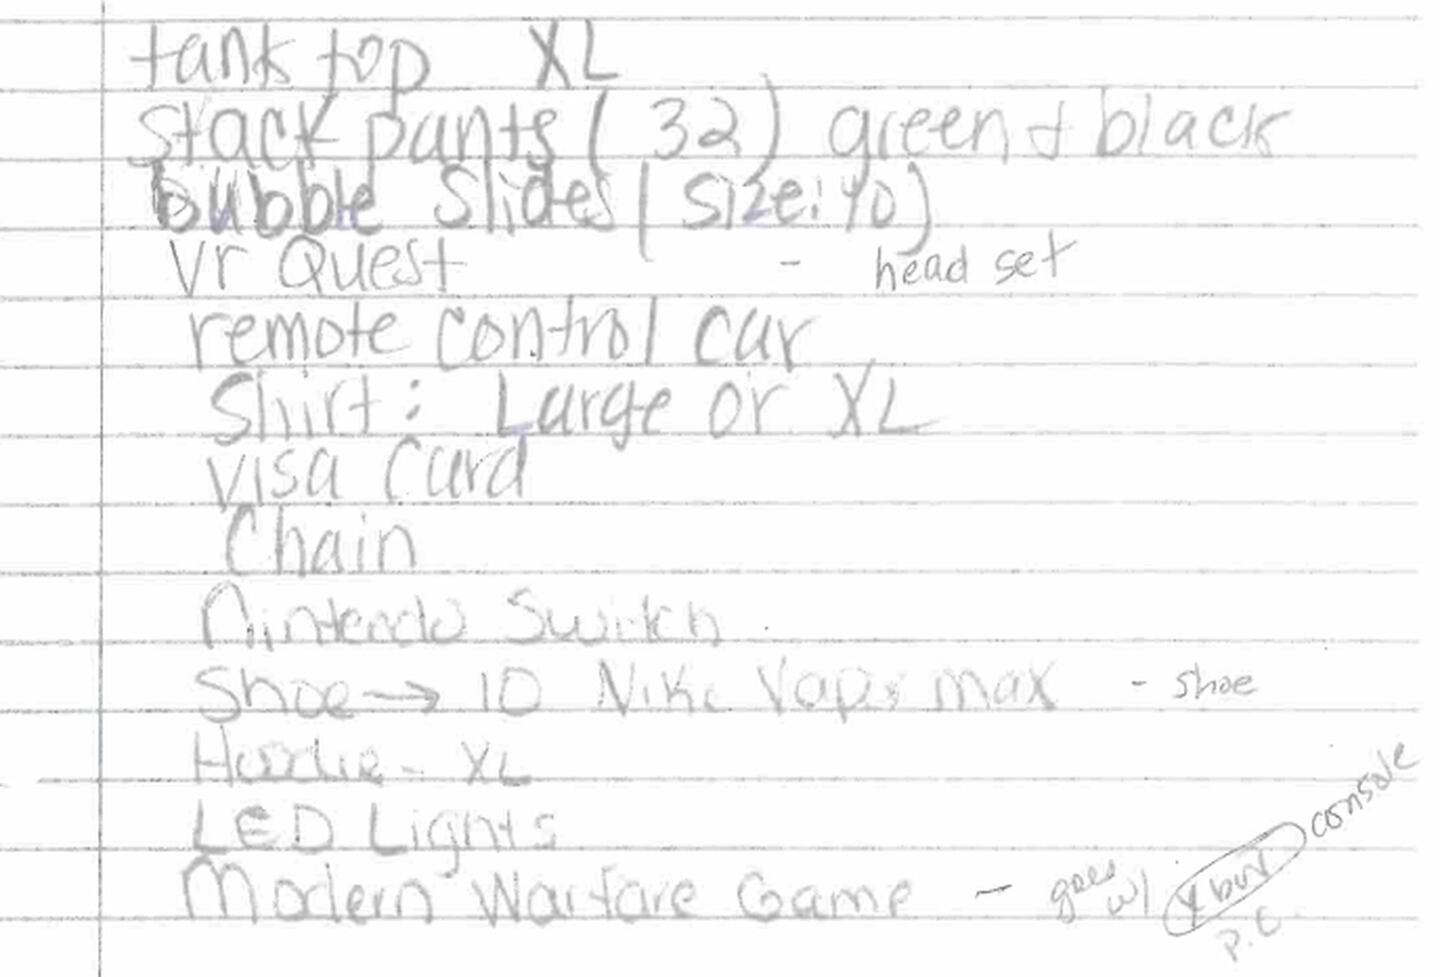 tank top XL
stack pants ( 32 ) green + black
bubble Slides ( Size: 40 )
Vr Quest - head set
remote control car
Shirt: Large or XL
Visa Card
Chain
Nintendo Switch
Shoe → 10 Nike Vapor max - shoe
Hoodie - XL
LED Lights
Modern Warfare Game - goes w/ xbox console
P.C.